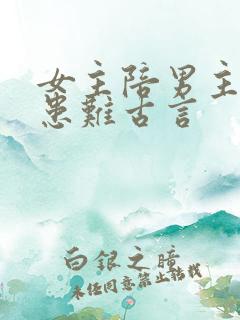 女主陪男主
患難古言
白银之瞳
未经同意禁止转载